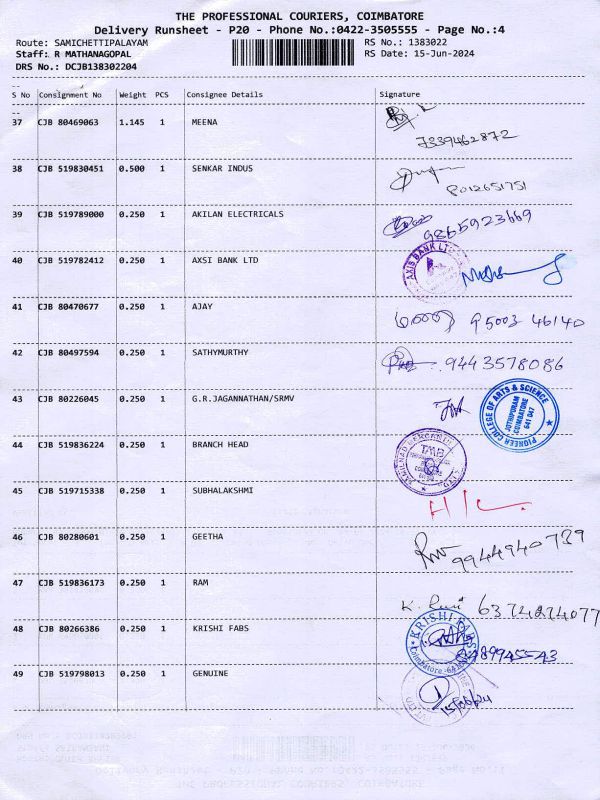 THE PROFESSIONAL COURIERS, COIMBATORE
Delivery Runsheet - P20 - Phone No.:0422-3505555 - Page No.:4
Route: SAMICHETTIPALAYAM RS No.: 1383022
Staff: R MATHANAGOPAL RS Date: 15-Jun-2024
DRS No.: DCJB138302204
S No Consignment No Weight PCS Consignee Details Signature
37 CJB 80469063 1.145 1 MEENA
7339462872
38 CJB 519830451 0.500 1 SENKAR INDUS
8012651751
39 CJB 519789000 0.250 1 AKILAN ELECTRICALS 9865923669
40 CJB 519782412 0.250 1 AXSI BANK LTD AXIS BANK LTD
41 CJB 80470677 0.250 1 AJAY 95003 46140
42 CJB 80497594 0.250 1 SATHYMURTHY 9443578086
43 CJB 80226045 0.250 1 G.R.JAGANNATHAN/SRMV PIONEER COLLEGE OF ARTS & SCIENCE
JOTHIPURAM
COIMBATORE
641 047
44 CJB 519836224 0.250 1 BRANCH HEAD TMB
45 CJB 519715338 0.250 1 SUBHALAKSHMI
46 CJB 80280601 0.250 1 GEETHA 9944940739
47 CJB 519836173 0.250 1 RAM K. 6374274077
48 CJB 80266386 0.250 1 KRISHI FABS KRISHI FABS
Coimbatore
49 CJB 519798013 0.250 1 GENUINE
15/06/24